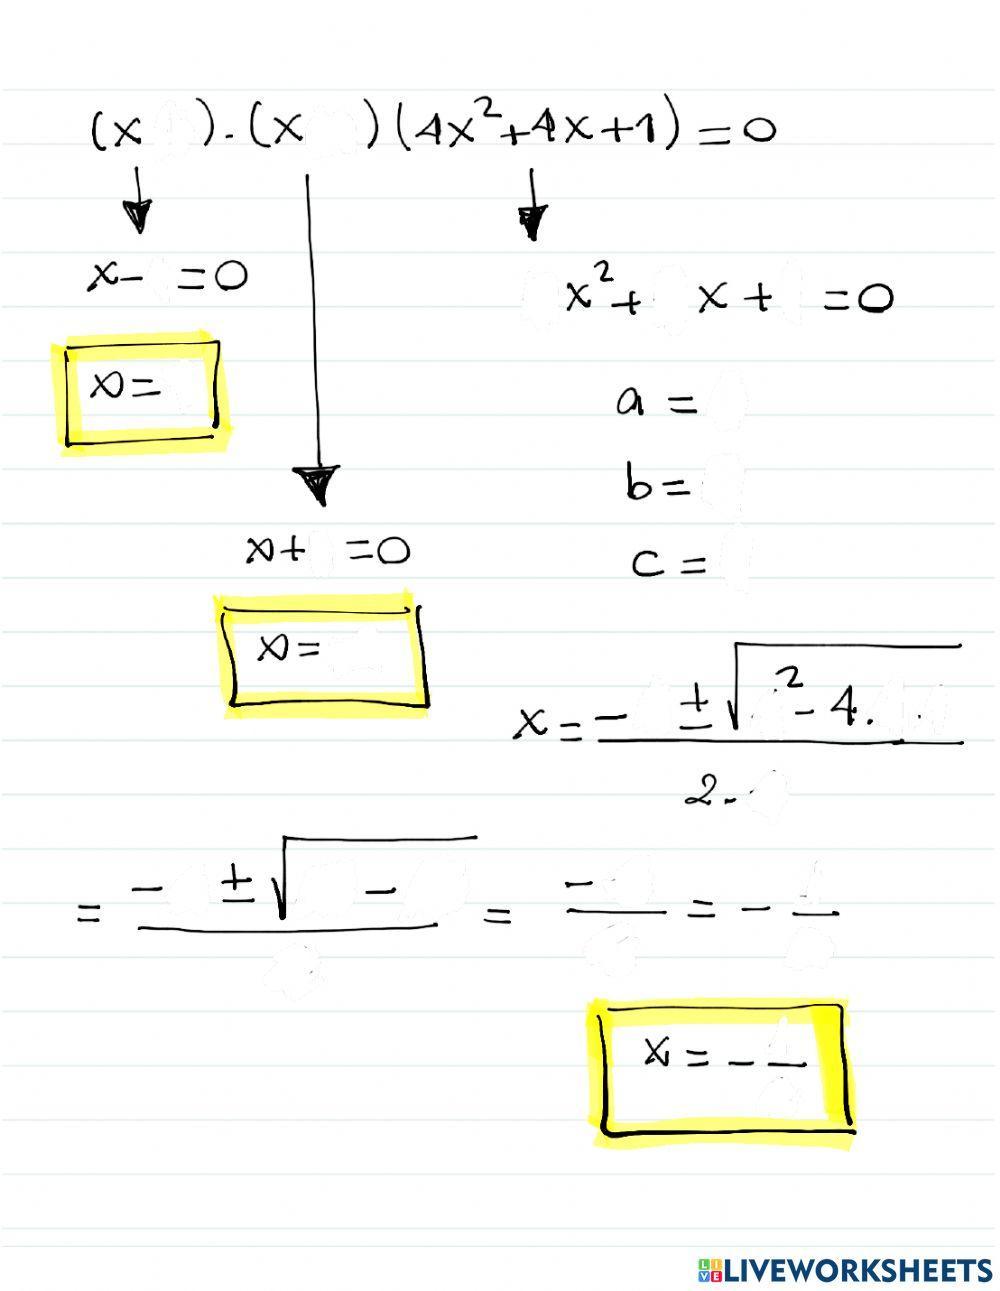 (x ).(x )(4x²+4x+1)=0
x- =0
x²+ x+ =0
x=
a =
b=
x+ =0
c =
x=
x = - ± √ ² - 4. .
2.
= - ± √ - = - = -
x = -
LIVEWORKSHEETS